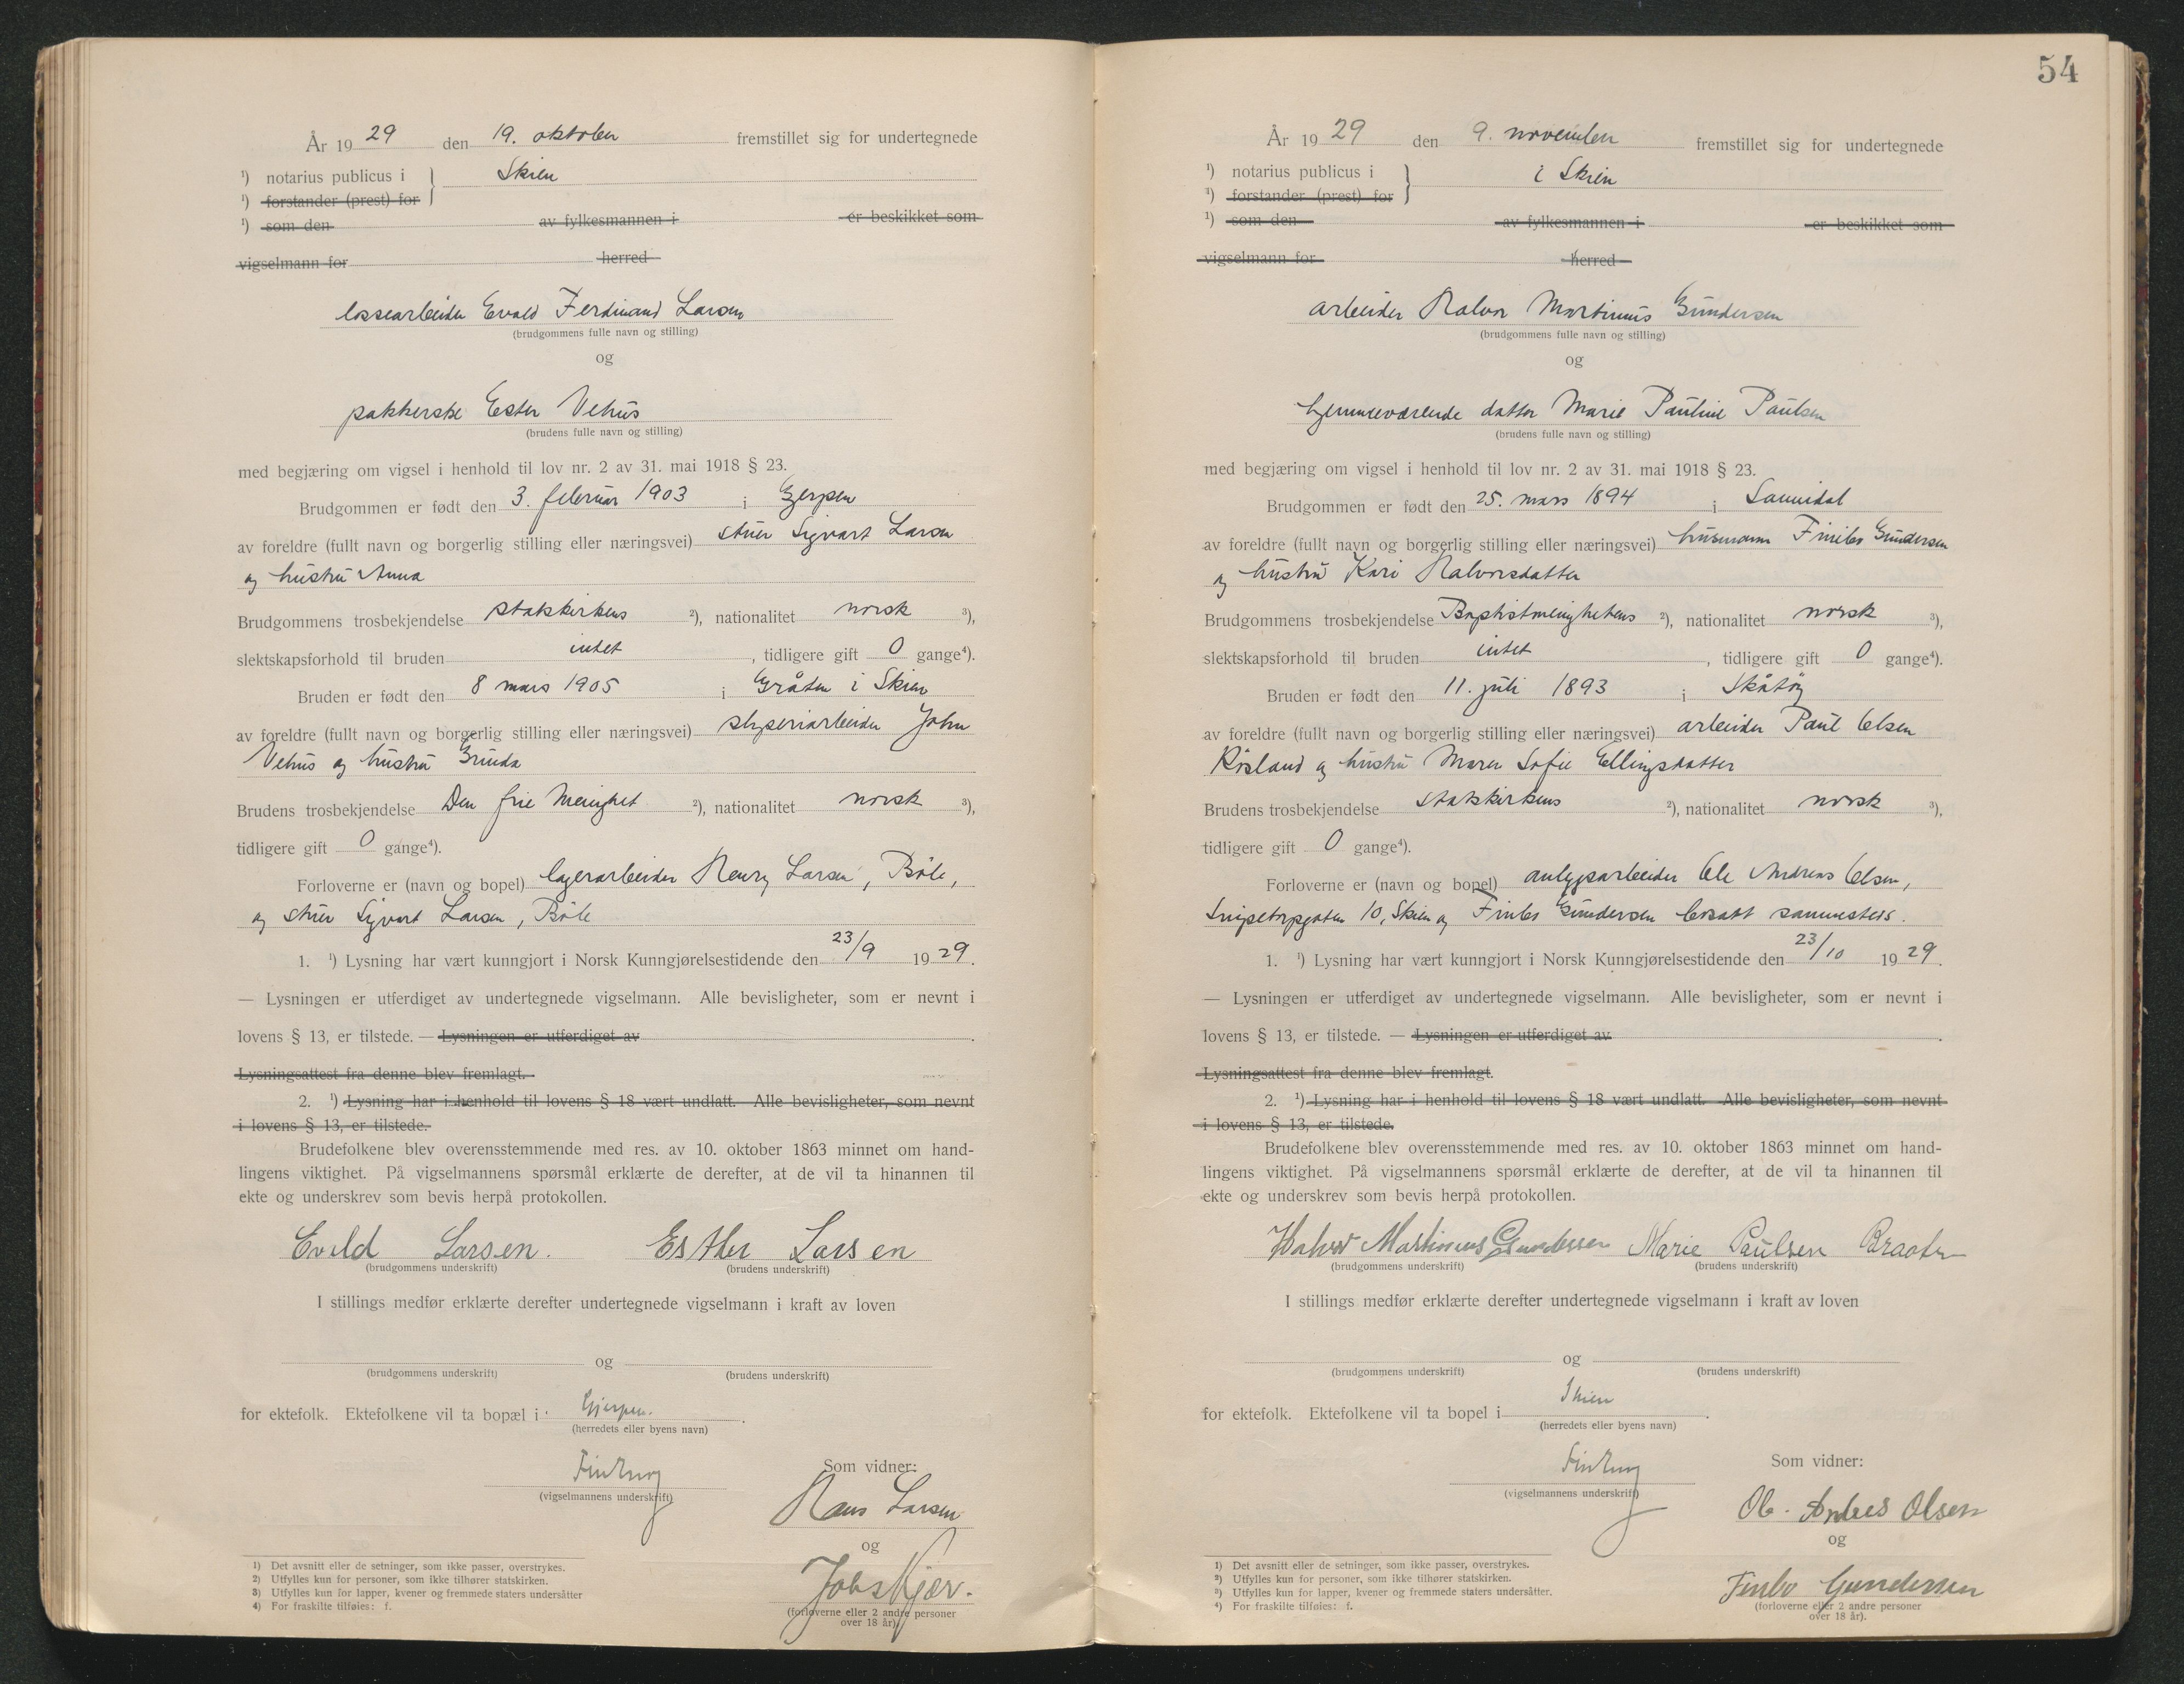 År 1929 den 19. oktober fremstillet sig for undertegnede
¹) notarius publicus i Skien
¹) forstander (prest) for
¹) som den av fylkesmannen i er beskikket som
vigselmann for herred
lossearbeider Evald Ferdinand Larsen
(brudgommens fulle navn og stilling)
og
pakkerske Ester Vehus
(brudens fulle navn og stilling)
med begjæring om vigsel i henhold til lov nr. 2 av 31. mai 1918 § 23.
Brudgommen er født den 3. februar 1903 i Gjerpen
av foreldre (fullt navn og borgerlig stilling eller næringsvei) stuer Sigvart Larsen
og hustru Anna
Brudgommens trosbekjendelse statskirkens ²), nationalitet norsk ³),
slektskapsforhold til bruden intet, tidligere gift 0 gange⁴).
Bruden er født den 8 mars 1905 i Gråten i Skien
av foreldre (fullt navn og borgerlig stilling eller næringsvei) sliperiarbeider John
Vehus og hustru Gunda
Brudens trosbekjendelse Den frie Menighet ²), nationalitet norsk ³),
tidligere gift 0 gange⁴).
Forloverne er (navn og bopel) lagerarbeider Henry Larsen, Bøle,
og stuer Sigvart Larsen, Bøle
1. ¹) Lysning har vært kunngjort i Norsk Kunngjørelsestidende den 23/9 1929.
— Lysningen er utferdiget av undertegnede vigselmann. Alle bevisligheter, som er nevnt i
lovens § 13, er tilstede. — Lysningen er utferdiget av
Lysningsattest fra denne blev fremlagt.
2. ¹) Lysning har i henhold til lovens § 18 vært undlatt. Alle bevisligheter, som nevnt
i lovens § 13, er tilstede.
Brudefolkene blev overensstemmende med res. av 10. oktober 1863 minnet om hand-
lingens viktighet. På vigselmannens spørsmål erklærte de derefter, at de vil ta hinannen til
ekte og underskrev som bevis herpå protokollen.
Evald Larsen. Esther Larsen
(brudgommens underskrift) (brudens underskrift)
I stillings medfør erklærte derefter undertegnede vigselmann i kraft av loven
og
(brudgommens underskrift) (brudens underskrift)
for ektefolk. Ektefolkene vil ta bopæl i Gjerpen.
(herredets eller byens navn)
Som vidner:
(vigselmannens underskrift)
Hans Larsen
og
(forloverne eller 2 andre personer
over 18 år).
1) Det avsnitt eller de setninger, som ikke passer, overstrykes.
2) Utfylles kun for personer, som ikke tilhører statskirken.
3) Utfylles kun for lapper, kvener og fremmede staters undersåtter
4) For fraskilte tilføies: f.
54
År 1929 den 9. november fremstillet sig for undertegnede
¹) notarius publicus i i Skien
¹) forstander (prest) for
¹) som den av fylkesmannen i er beskikket som
vigselmann for herred
arbeider Halvor Martinius Gundersen
(brudgommens fulle navn og stilling)
og
hjemmeværende datter Marie Pauline Paulsen
(brudens fulle navn og stilling)
med begjæring om vigsel i henhold til lov nr. 2 av 31. mai 1918 § 23.
Brudgommen er født den 25. mars 1894 i Sannidal
av foreldre (fullt navn og borgerlig stilling eller næringsvei) husmann Finbo Gundersen
og hustru Kari Halvorsdatter
Brudgommens trosbekjendelse Baptistmenighetens ²), nationalitet norsk ³),
slektskapsforhold til bruden intet, tidligere gift 0 gange⁴).
Bruden er født den 11. juli 1893 i Skåtøy
av foreldre (fullt navn og borgerlig stilling eller næringsvei) arbeider Paul Olsen
Røsland og hustru Maren Sofie Ellingsdatter
Brudens trosbekjendelse statskirkens ²), nationalitet norsk ³),
tidligere gift 0 gange⁴).
Forloverne er (navn og bopel) anleggsarbeider Ole Andreas Olsen,
Snipetorpgaten 10, Skien og Finbo Gundersen bosatt sammesteds.
1. ¹) Lysning har vært kunngjort i Norsk Kunngjørelsestidende den 23/10 1929.
— Lysningen er utferdiget av undertegnede vigselmann. Alle bevisligheter, som er nevnt i
lovens § 13, er tilstede. — Lysningen er utferdiget av
Lysningsattest fra denne blev fremlagt.
2. ¹) Lysning har i henhold til lovens § 18 vært undlatt. Alle bevisligheter, som nevnt
i lovens § 13, er tilstede.
Brudefolkene blev overensstemmende med res. av 10. oktober 1863 minnet om hand-
lingens viktighet. På vigselmannens spørsmål erklærte de derefter, at de vil ta hinannen til
ekte og underskrev som bevis herpå protokollen.
Halvor Martinius Gundersen Marie Paulsen Braaten
(brudgommens underskrift) (brudens underskrift)
I stillings medfør erklærte derefter undertegnede vigselmann i kraft av loven
og
(brudgommens underskrift) (brudens underskrift)
for ektefolk. Ektefolkene vil ta bopel i Skien.
(herredets eller byens navn)
Som vidner:
(vigselmannens underskrift)
Ole Andreas Olsen
og
Finbo Gundersen
(forloverne eller 2 andre personer
over 18 år).
1) Det avsnitt eller de setninger, som ikke passer, overstrykes.
2) Utfylles kun for personer, som ikke tilhører statskirken.
3) Utfylles kun for lapper, kvener og fremmede staters undersåtter.
4) For fraskilte tilføies: f.